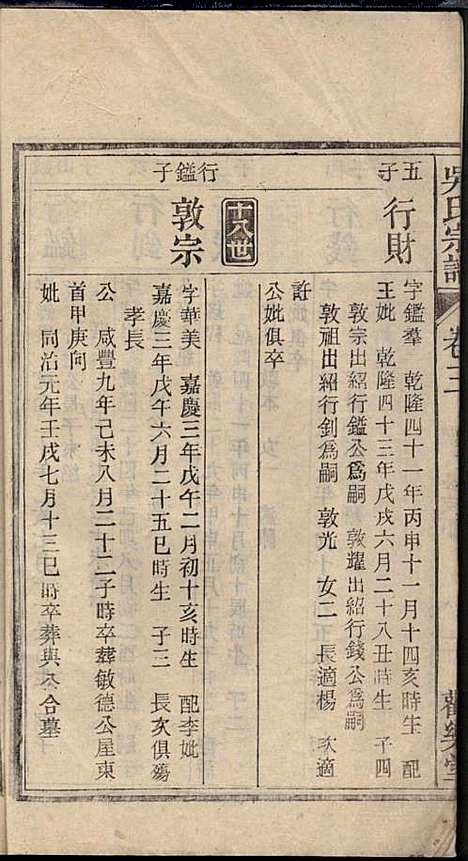 吳氏宗譜
卷三
五子
行財
字鑑羣 乾隆四十一年丙申十一月十四亥時生 配
王妣 乾隆四十三年戊戌六月二十八丑時生 子四
敦宗出紹行鎰公爲嗣 敦耀出紹行錢公爲嗣
敦祖出紹行釗爲嗣 敦光 女二 長適楊 次適
許
公妣俱卒
十八世
行鎰子
敦宗
字華美 嘉慶三年戊午二月初十亥時生 配李妣
嘉慶三年戊午六月二十五巳時生 子三 長次俱殤
孝長
公 咸豐九年己未八月二十二子時卒葬敏德公屋東
首甲庚向
妣 同治元年壬戌七月十三巳時卒葬與公合墓